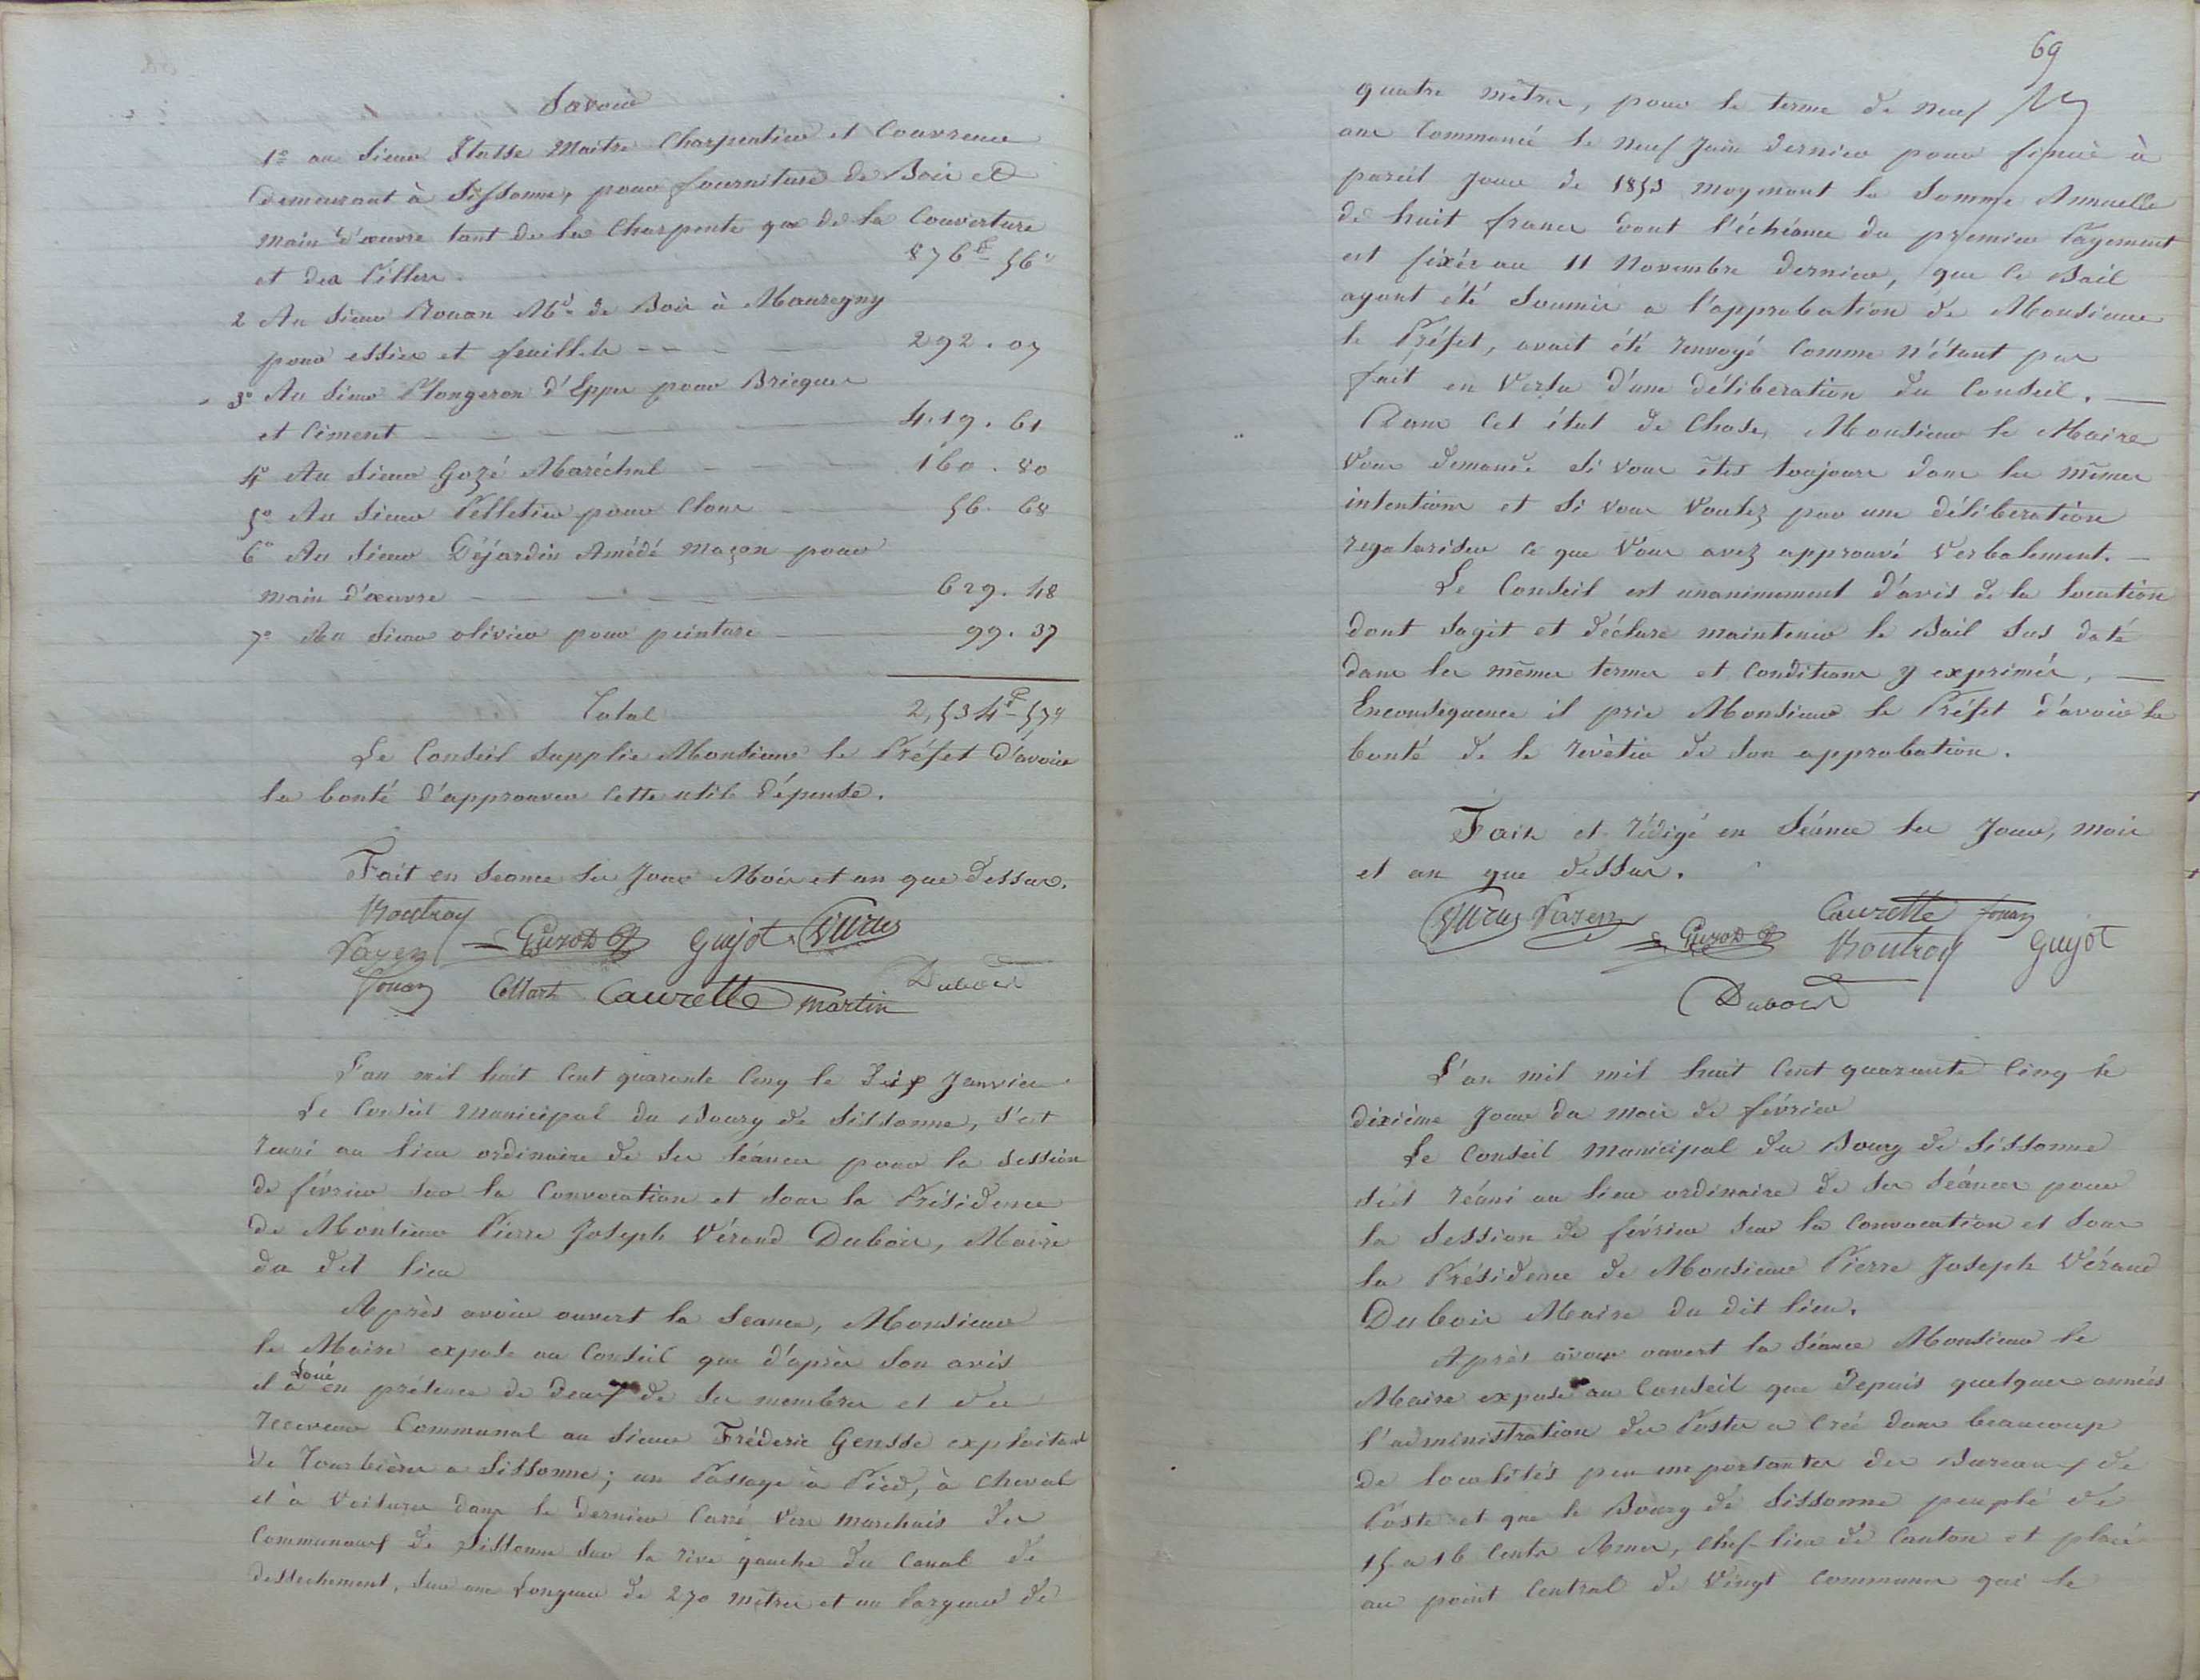 Savoir
1° au Sieur Stusse Maitre Charpentier et Couvreur
demeurant à Sissonne, pour fourniture de Bois et
main d'œuvre tant de la Charpente que de la Couverture
et des Pilliers 876 f 56 c
2 Au Sieur Rouan Md de Bois à Mauregny
pour essieu et feuillets 292. 07
3° Au Sieur Plongeron d'Eppes pour Bricques
et Ciment 419. 61
4° Au Sieur Gozé Maréchal 160. 80
5° Au Sieur Pelletier pour Clous 56. 68
6° Au Sieur Déjardin Amédé Maçon pour
main d'œuvre 629. 48
7° Au Sieur olivier pour peinture 99. 37
Total 2,534 f 57 c
Le Conseil Supplie Monsieur le Préfet d'avoir
la bonté d'approuver Cette utile dépense.
Fait en Séance les Jour Mois et an que dessus.
Routroy
Vayen Guyot Vurus
Jouan Collart Caurette martin Dubois
L'an mil huit Cent quarante Cinq le dix Janvier
Le Conseil Municipal du Bourg de Sissonne, S'est
réuni au lieu ordinaire de Ses Séances pour la Session
de février Sur la Convocation et Sous la Présidence
de Monsieur Pierre Joseph Vérand Dubois, Maire
du dit lieu
Après avoir ouvert la Séance, Monsieur
le Maire expose au Conseil que d'après Son avis
il a Loué en présence de deux de Ses membres et du
receveur Communal au Sieur Fréderic Gensse exploitant
de Tourbières a Sissonne; un Passage à Pied, à Cheval
et à Voitures dans le dernier Carré Vers Marchais des
Communaux de Sissonne Sur la rive gauche du Canal de
dessechement, Sur une Longueur de 270 mètres et un largeur de
69
quatre mètres, pour le terme de neuf
ans Commencé le neuf Juin dernier pour finir à
pareil jour de 1853 moyennant la Somme Annuelle
de huit francs dont l'échéance du premier Payement
est fixée au 11 Novembre dernier, que le Bail
ayant été Soumis a l'approbation de Monsieur
le Préfet, avait été renvoyé Comme n'étant pas
fait en Vertu d'une délibération du Conseil.
Dans Cet état de Chose, Monsieur le Maire
Vous demande Si Vous êtes toujours dans les mêmes
intentions et Si Vous Voulez par une délibération
regulariser Ce que Vous avez approuvé Verbalement.
Le Conseil est unanimement d'avis de la location
dont Sagit et déclare maintenir le Bail Sus daté
dans les mêmes termes et Conditions y exprimés,
Enconséquence il prie Monsieur le Préfet d'avoir la
bonté de le revêtir de Son approbation.
Fait et rédigé en Séance les Jour, mois
et an que dessus.
Vurus Vayen Caurette Jouan
Routroy Guyot
Dubois
L'an mil mil huit Cent quarante Cinq le
dixième Jour du mois de février
Le Conseil Municipal du Bourg de Sissonne
Sést réuni au lieu ordinaire de Ses Séances pour
la Session de février Sur la Convocation et Sous
la Présidence de Monsieur Pierre Joseph Vérand
Dubois Maire du dit lieu.
Après avoir ouvert la Séance Monsieur le
Maire expose au Conseil que depuis quelques années
l'administration des Postes a Créé dans beaucoup
de localités peu importantes des Bureaux de
Poste et que le Bourg de Sissonne peuplé de
15 a 16 Cents Ames, Chef-lieu de Canton et placé
au point Central de Vingt Communes qui le